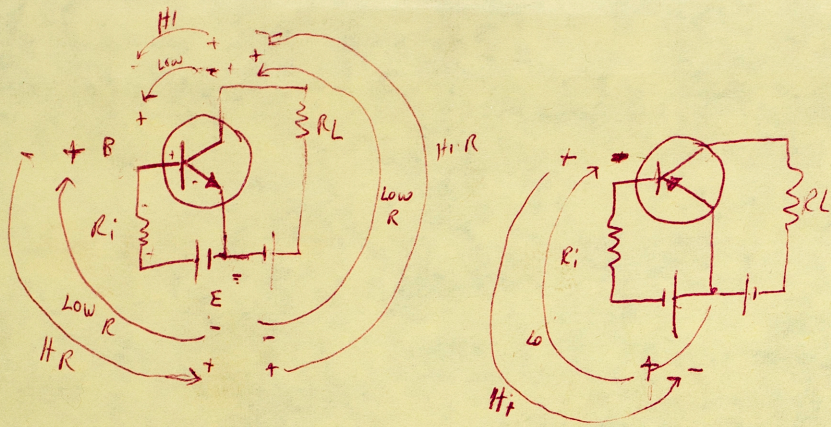 HI
+
+
-
LOW
- +
+
+
- + B
+
-
RL
Hi-R
LOW
R
Ri
E
-
-
LOW
R
HR
+
+
+ -
Ri
RL
Lo
+ -
Hi